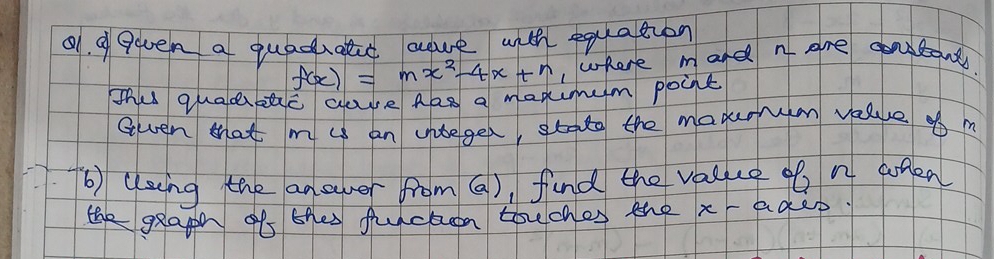 Q1. a) Given a quadratic curve with equation
f(x) = mx²-4x+n, where m and n are constants.
This quadratic curve has a maximum point
Given that m is an integer, state the maximum value of m
b) Using the answer from (a), find the value of n when
the graph of this function touches the x-axis.